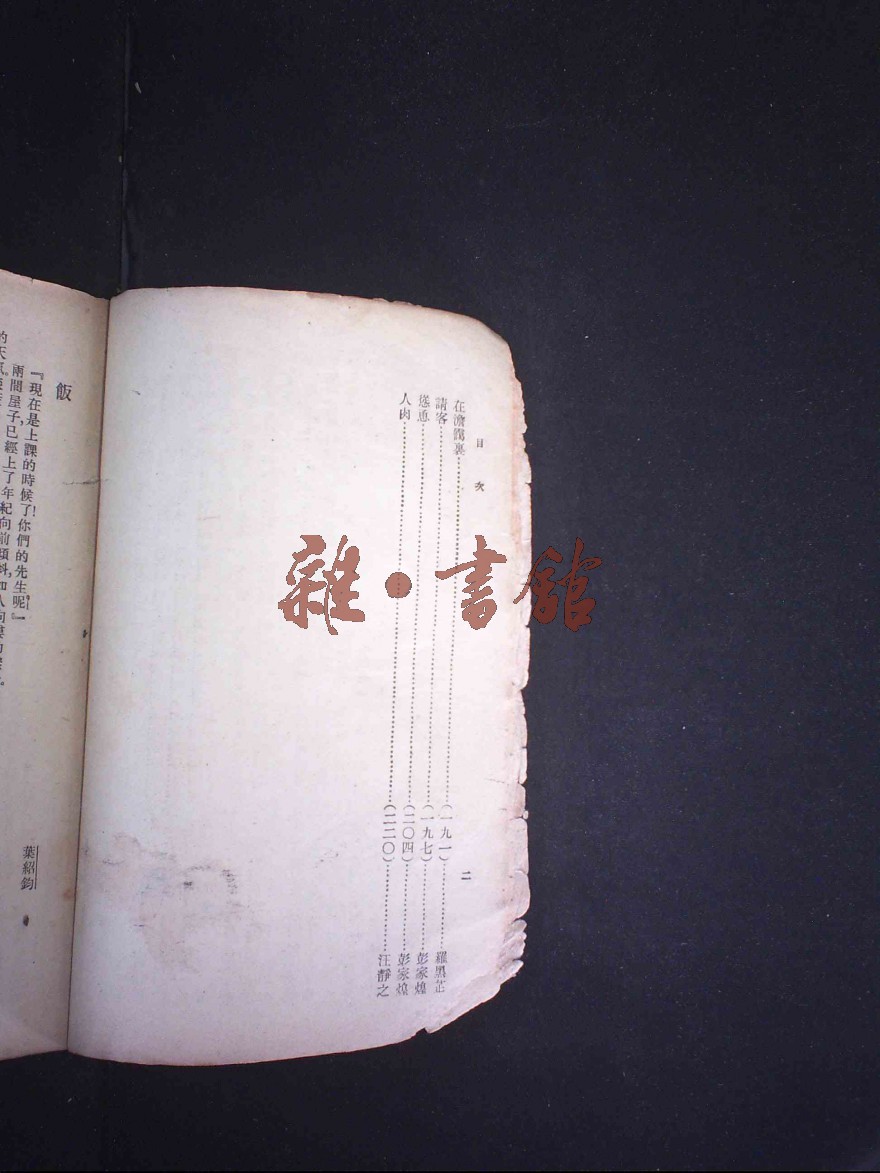 目次
在澹靄裏(一九一)羅黑芷
請客(一九七)彭家煌
慫恿(二〇四)彭家煌
人肉(二二〇)汪靜之
二
飯
葉紹鈞
『現在是上課的時候了!你們的先生呢』
兩間屋子,已經上了年紀,向前傾斜,如人
的天氣
雜·書館